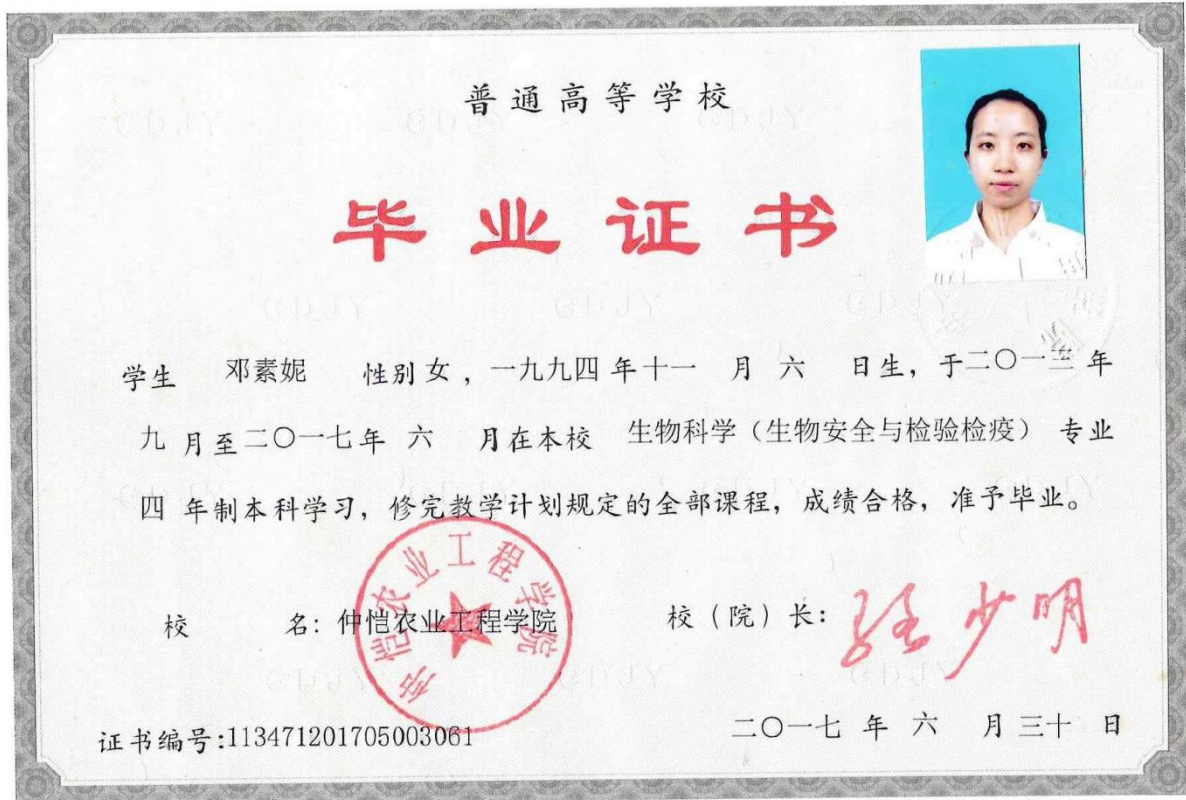 普通高等学校
毕业证书
学生 邓素妮 性别 女，一九九四 年 十一 月 六 日生，于二〇一三 年
九 月至二〇一七年 六 月在本校 生物科学（生物安全与检验检疫） 专业
四 年制本科学习，修完教学计划规定的全部课程，成绩合格，准予毕业。
仲恺农业工程学院
校 名：仲恺农业工程学院 校（院）长：
证书编号:113471201705003061 二〇一七 年 六 月 三十 日